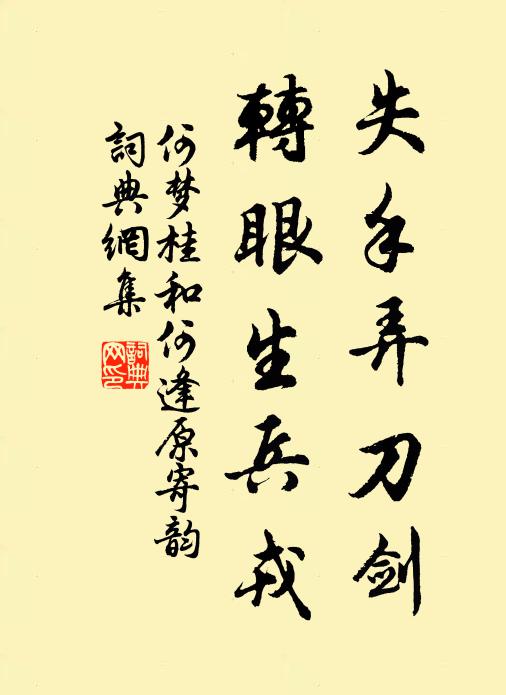 失手弄刀剑
轉眼生兵戎
何梦桂和何逢原寄韵
詞典網集
詞典
网印